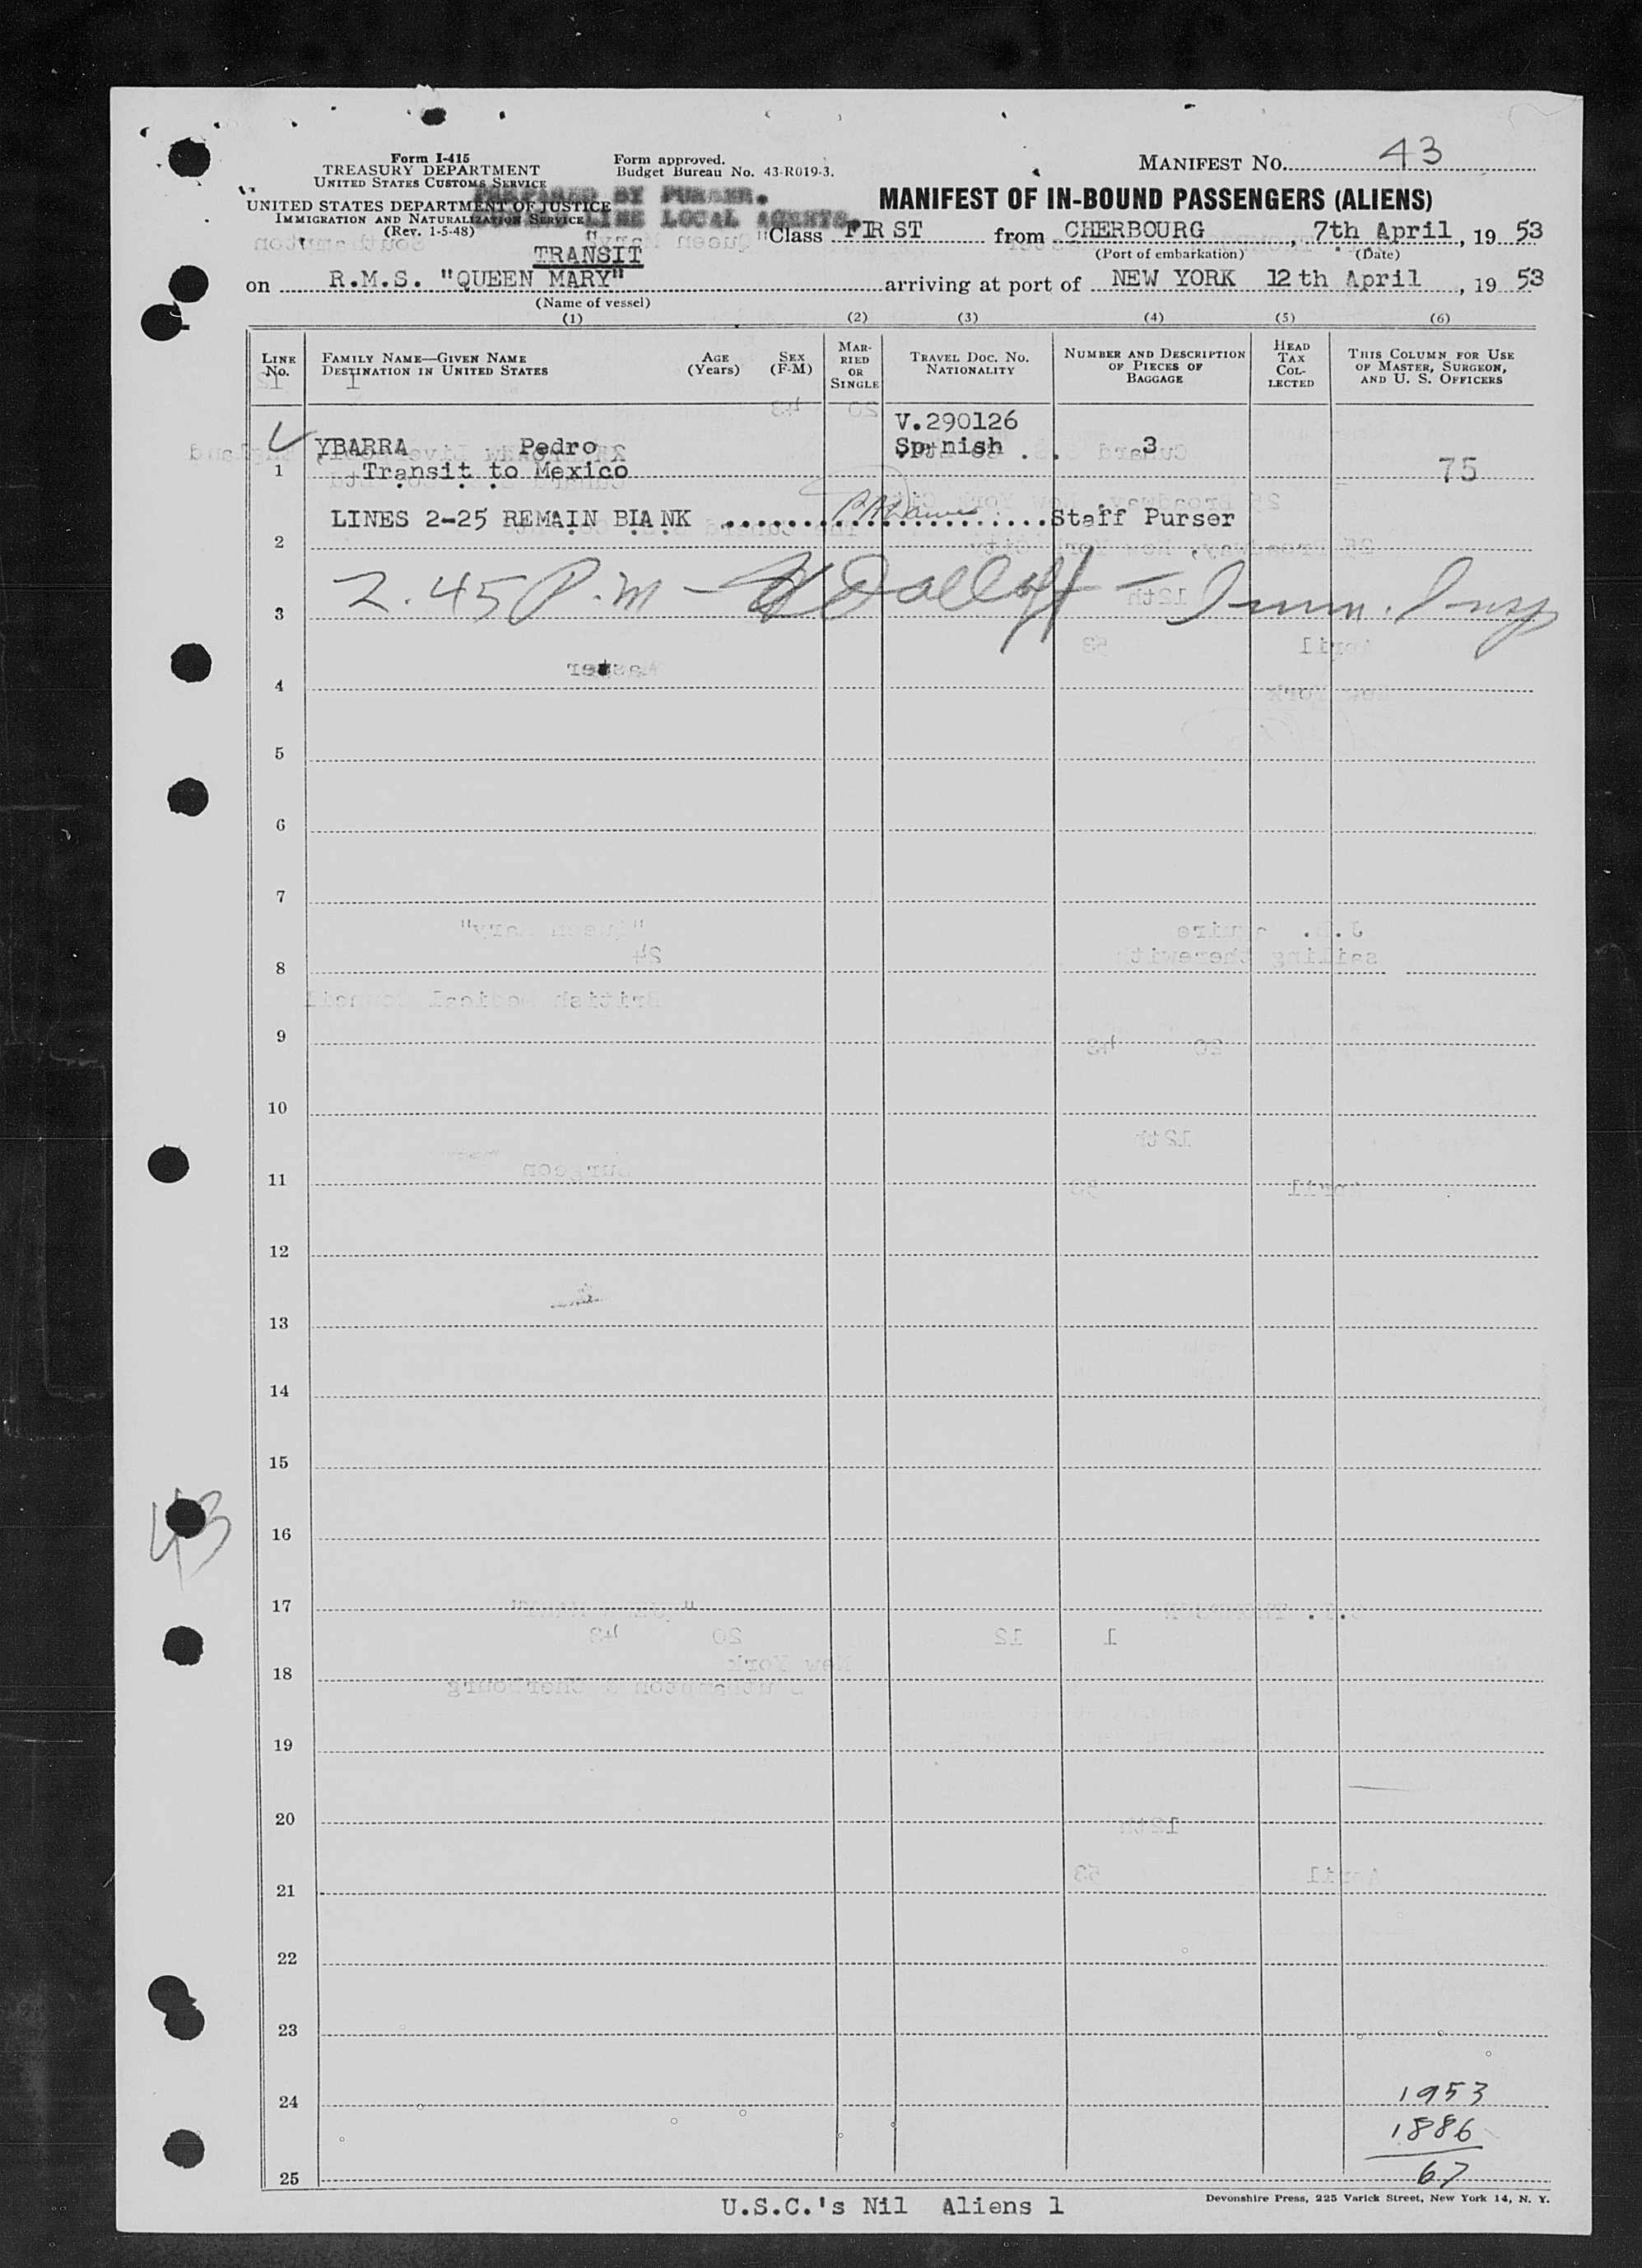 Form I-415
TREASURY DEPARTMENT
UNITED STATES CUSTOMS SERVICE
UNITED STATES DEPARTMENT OF JUSTICE
IMMIGRATION AND NATURALIZATION SERVICE
(Rev. 1-5-48)
Form approved.
Budget Bureau No. 43-R019-3.
PREPARED BY PURSER.
LINE LOCAL AGENTS.
MANIFEST NO. 43
MANIFEST OF IN-BOUND PASSENGERS (ALIENS)
Class FIRST from CHERBOURG, 7th April, 19 53
(Port of embarkation) (Date)
TRANSIT
on R.M.S. "QUEEN MARY" arriving at port of NEW YORK 12th April, 19 53
(Name of vessel)
(1) (2) (3) (4) (5) (6)
LINE NO. FAMILY NAME—GIVEN NAME DESTINATION IN UNITED STATES AGE (Years) SEX (F-M) MARRIED OR SINGLE TRAVEL DOC. NO. NATIONALITY NUMBER AND DESCRIPTION OF PIECES OF BAGGAGE HEAD TAX COLLECTED THIS COLUMN FOR USE OF MASTER, SURGEON, AND U. S. OFFICERS
V.290126
YBARRA Pedro Sp nish 3
1 Transit to Mexico 75
LINES 2-25 REMAIN BLANK ........................Staff Purser
2
2.45 P.m - Imm. Insp
3
4
5
6
7
8
9
10
11
12
13
14
15
43
16
17
18
19
20
21
22
23
1953
24
1886
67
25
U.S.C.'s Nil Aliens 1
Devonshire Press, 225 Varick Street, New York 14, N. Y.